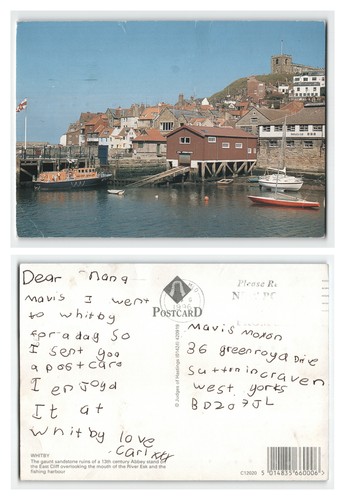 Dear Nana
Mavis I went
to whitby
for a day So
I sent you
a postcard
I enjoyd
It at
whitby love
Carl
Mavis moxon
36 greenroyd Drive
Suttonincraven
west yorks
BD20 7JL
POSTCARD
© Judges of Hastings (01424) 420919
WHITBY
The gaunt sandstone ruins of a 13th century Abbey stand on
the East Cliff overlooking the mouth of the River Esk and the
fishing harbour
C12020
5 014835 660006